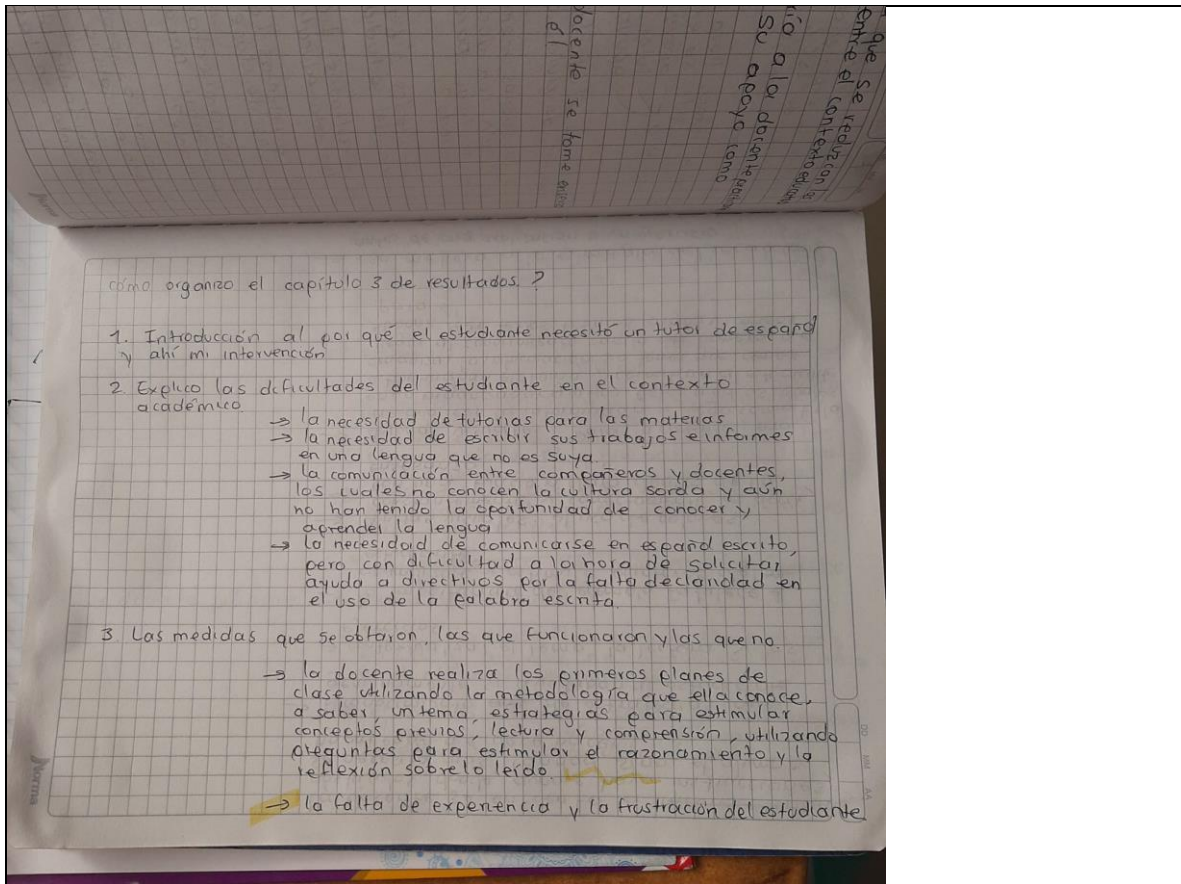 que se reduzcan las
entre el contexto educativo
io a la docente para
su apoyo como
docente se tome en
el
como organizo el capítulo 3 de resultados. ?
1. Introducción al por qué el estudiante necesitó un tutor de español
y ahí mi intervención
2. Explico las dificultades del estudiante en el contexto
académico
→ la necesidad de tutorias para las materias
→ la necesidad de escribir sus trabajos e informes
en una lengua que no es suya.
→ la comunicación entre compañeros y docentes,
los cuales no conocen la cultura sorda y aún
no han tenido la oportunidad de conocer y
aprender la lengua
→ la necesidad de comunicarse en español escrito,
pero con dificultad a la hora de solicitar
ayuda a directivos por la falta de claridad en
el uso de la palabra escrita.
3. Las medidas que se obtaron, las que funcionaron y las que no.
→ la docente realiza los primeros planes de
clase utilizando la metodología que ella conoce,
a saber, un tema, estrategias para estimular
conceptos previos, lectura y comprensión, utilizando
preguntas para estimular el razonamiento y la
reflexión sobre lo leído.
→ la falta de experiencia y la frustración del estudiante
Norma
DD MM AA